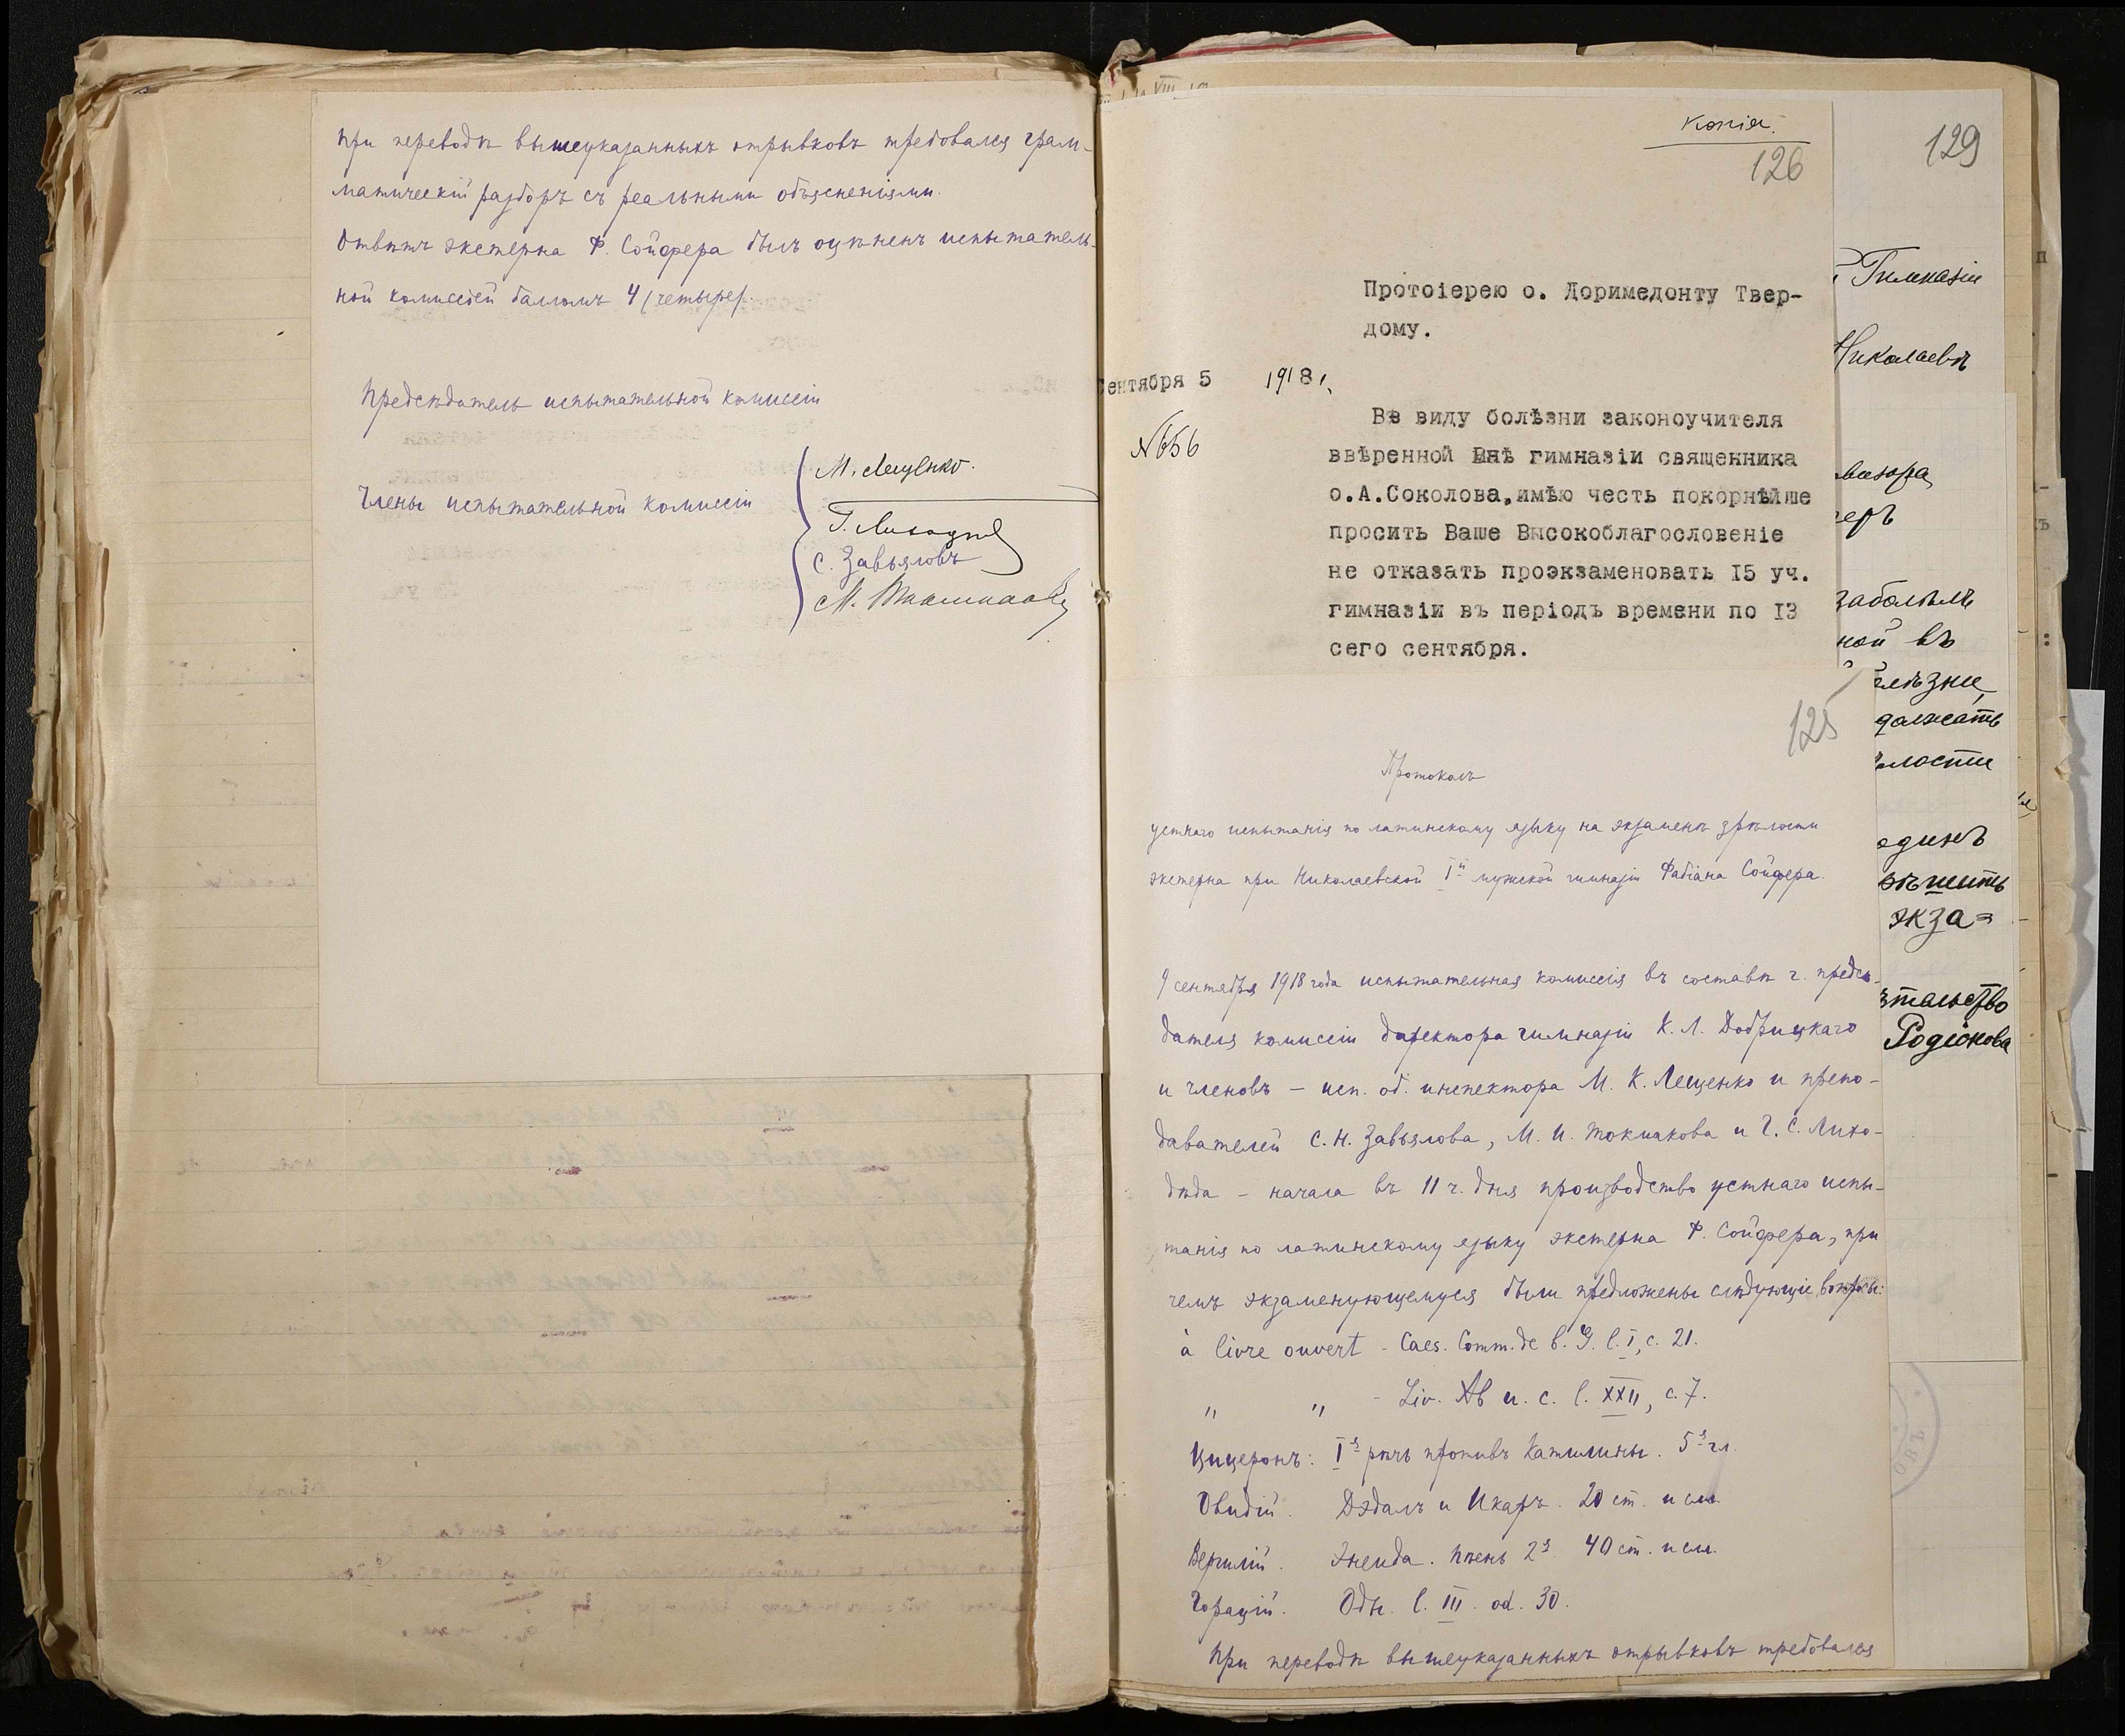 при переводѣ вышеуказанныхъ отрывковъ требовался грам-
матическій разборъ съ реальными объясненіями.
Отвѣтъ экстерна Ф. Сойфера былъ оцѣненъ испытатель-
ной комиссіей балломъ 4 (четыре).
Предсѣдатель испытательной комиссіи
М. Лещенко.
Члены испытательной комиссіи
С. Завьяловъ
Копія.
126
Протоіерею о. Доримедонту Твер-
дому.
Сентября 5 1918 г.
№ 656
Въ виду болѣзни законоучителя
ввѣренной мнѣ гимназіи священника
о.А.Соколова,имѣю честь покорнѣйше
просить Ваше Высокоблагословеніе
не отказать проэкзаменовать I5 уч.
гимназіи въ періодъ времени по I3
сего сентября.
125
Протоколъ
устнаго испытанія по латинскому языку на экзаменѣ зрѣлости
экстерна при Николаевской I-й мужской гимназіи Фабіана Сойфера.
9 сентября 1918 года испытательная комиссія въ составѣ г. предсѣ-
дателя комиссіи директора гимназіи К. Л. Добрицкаго
и членовъ – исп. об. инспектора М. К. Лещенко и препо-
давателей С. Н. Завьялова, М. И. Токмакова и Г. С. Лихо-
дѣда – начала въ 11 ч. дня производство устнаго испы-
танія по латинскому языку экстерна Ф. Сойфера, при
чемъ экзаменующемуся были предложены слѣдующіе вопросы:
à livre ouvert - Caes. Comm. de b. G. l. I, c. 21.
" " - Liv. Ab u. c. l. XXII, c. 7.
Цицеронъ: I-я рѣчь противъ Катилины. 5-я гл.
Овидій. Дэдалъ и Икаръ. 20 ст. и см.
Вергилій. Энеида. Пѣснь 2-я 40 ст. и см.
Горацій. Оды. l. III. od. 30.
При переводѣ вышеуказанныхъ отрывковъ требовался
129
Гимназіи
Николаевѣ
заболѣлъ
ной въ
олѣзни,
должать
лости
одинъ
ѣшить
экза=
тальство
Родіонова